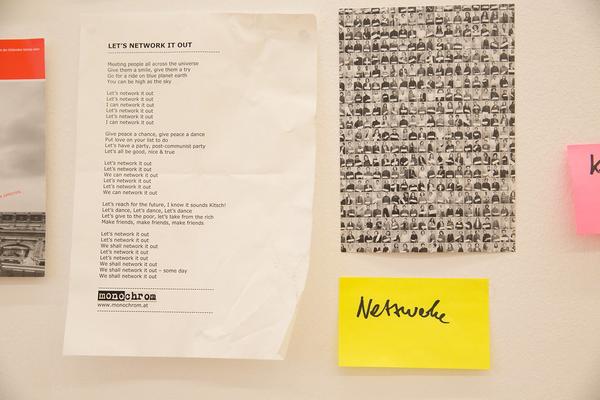 LET'S NETWORK IT OUT
Meeting people all across the universe
Give them a smile, give them a try
Go for a ride on blue planet earth
You can be high as the sky
Let's network it out
Let's network it out
I can network it out
Let's network it out
Let's network it out
I can network it out
Give peace a chance, give peace a dance
Put love on your list to do
Let's have a party, post-communist party
Let's all be good, nice & true
Let's network it out
Let's network it out
We can network it out
Let's network it out
Let's network it out
We can network it out
Let's reach for the future, I know it sounds Kitsch!
Let's dance, Let's dance, Let's dance
Let's give to the poor, let's take from the rich
Make friends, make friends, make friends
Let's network it out
Let's network it out
We shall network it out
Let's network it out
Let's network it out
We shall network it out
We shall network it out – some day
We shall network it out
monochrom
www.monochrom.at
Netzwerke
K